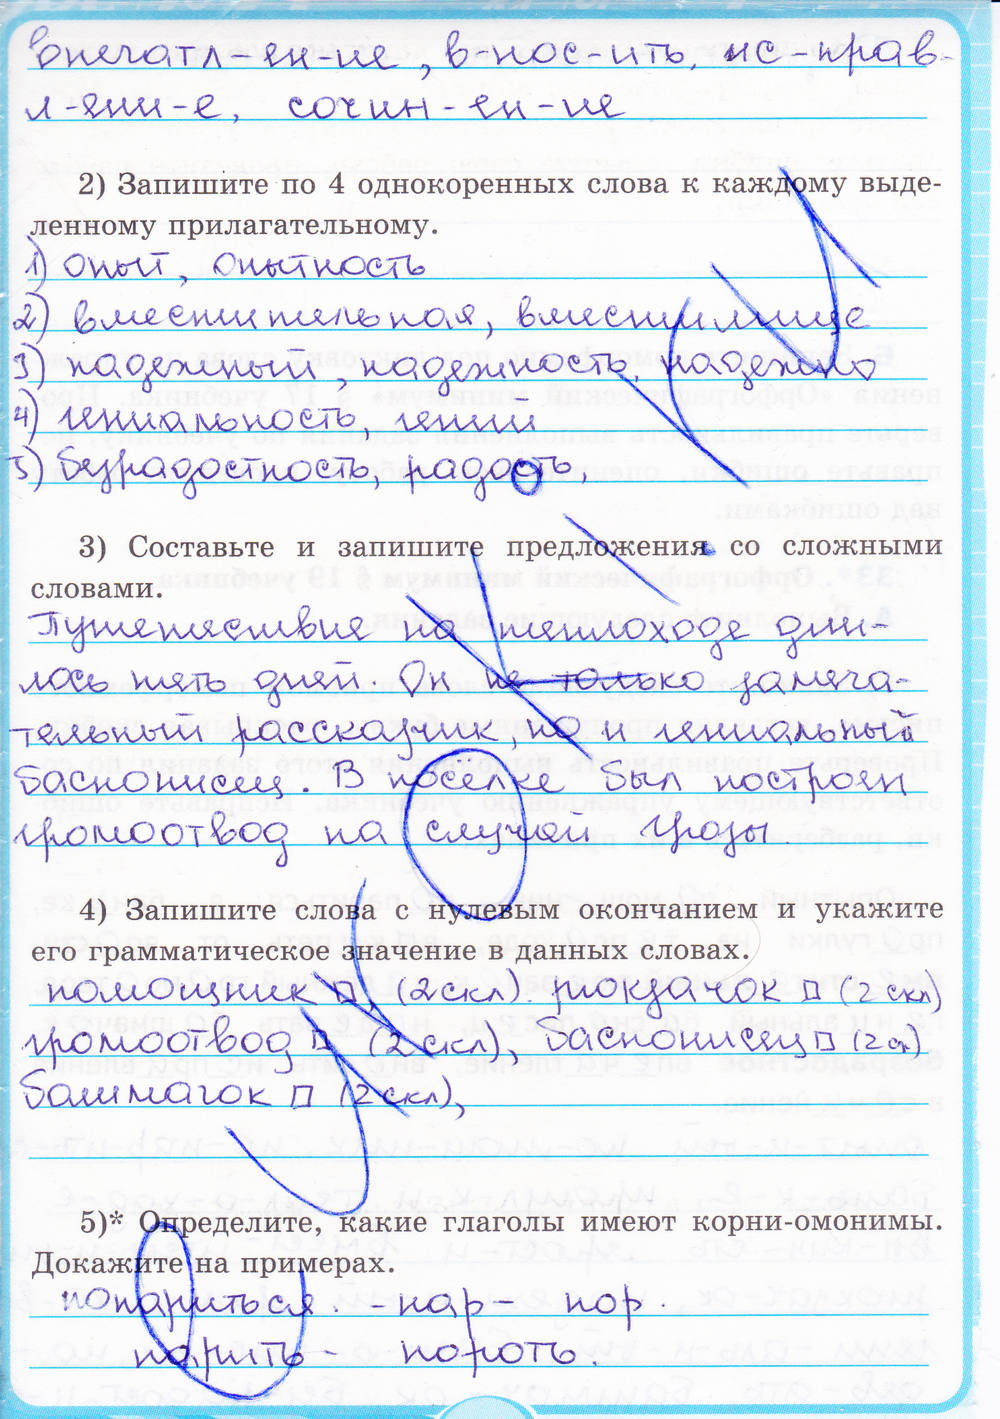 впечатл-ен-ие, внос-ить, ис-прав-
л-ени-е, сочин-ен-ие
2) Запишите по 4 однокоренных слова к каждому выде-
ленному прилагательному.
1) опыт, опытность
2) вместительная, вместилище
3) надежный, надежность, надежно
4) гениальность, гений
5) безрадостность, радость,
3) Составьте и запишите предложения со сложными
словами.
Путешествие на теплоходе дли-
лось пять дней. Он не только замеча-
тельный рассказчик, но и гениальный
баснописец. В поселке был построен
громоотвод на случай грозы
4) Запишите слова с нулевым окончанием и укажите
его грамматическое значение в данных словах.
помощник (2 скл). пиджачок (2 скл)
громоотвод (2 скл), баснописец (2 ск)
башмачок (2 скл),
5)* Определите, какие глаголы имеют корни-омонимы.
Докажите на примерах.
попариться. - пар- пор.
парить - пороть.